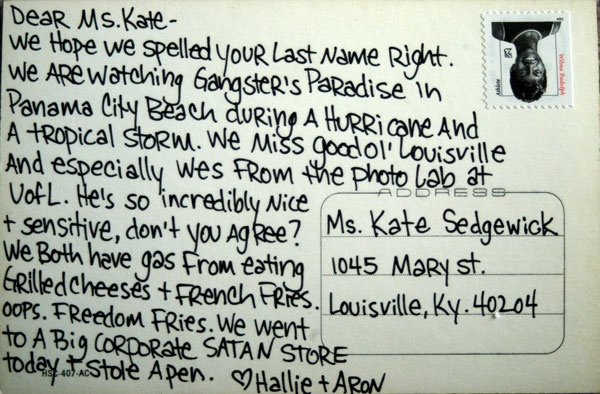 Dear Ms. Kate-
We Hope we spelled your Last Name Right.
We are watching Gangster's Paradise in
Panama City Beach during A Hurricane And
A tropical Storm. We Miss good ol' Louisville
And especially Wes From the photo Lab at
UofL. He's so incredibly Nice
+ sensitive, don't you Agree?
We Both have gas From eating
Grilled cheeses + French Fries.
oops. Freedom Fries. We went
to A Big Corporate SATAN STORE
today + Stole A pen. ♡Hallie + ARON
HSC-407-AC
Wilma Rudolph
ADDRESS
Ms. Kate Sedgewick
1045 Mary st.
Louisville, Ky. 40204